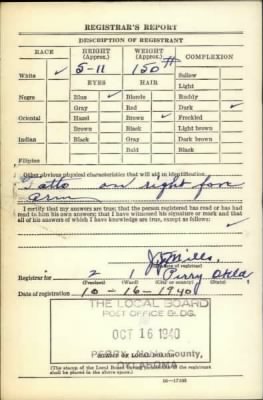 REGISTRAR'S REPORT
DESCRIPTION OF REGISTRANT
RACE
HEIGHT (Approx.)
WEIGHT (Approx.)
COMPLEXION
White ✓
5-11
150 #
Sallow
EYES
HAIR
Light
Negro
Blue ✓
Blonde
Ruddy
Gray
Red
Dark ✓
Oriental
Hazel
Brown ✓
Freckled
Brown
Black
Light brown
Indian
Black
Gray
Dark brown
Bald
Black
Filipino
Other obvious physical characteristics that will aid in identification
Tatto on right fore
arm
I certify that my answers are true; that the person registered has read or has had
read to him his own answers; that I have witnessed his signature or mark and that
all of his answers of which I have knowledge are true, except as follows:
Mills
(Signature of registrar)
Registrar for 2 1 Perry Okla
(Precinct) (Ward) (City or county) (State)
Date of registration 10-16-1940
THE LOCAL BOARD
POST OFFICE BLDG.
OCT 16 1940
County,
OKLAHOMA
(The stamp of the Local Board having jurisdiction of the registrant
shall be placed in the above space.)